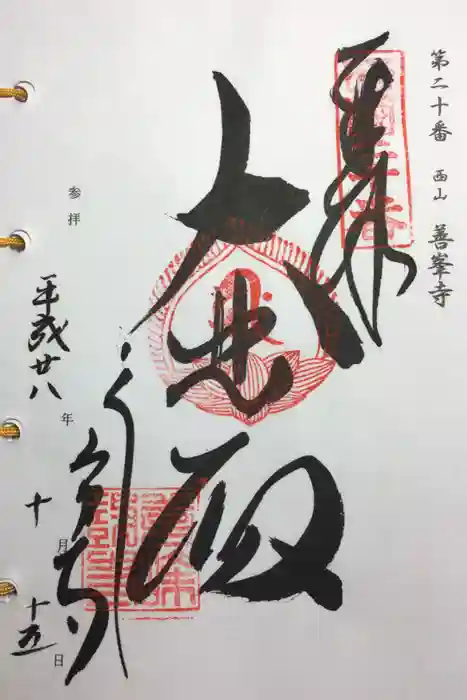 第二十番 西山 善峯寺
奉拝
大悲殿
善峯寺
参拝
平成廿八年十月十五日